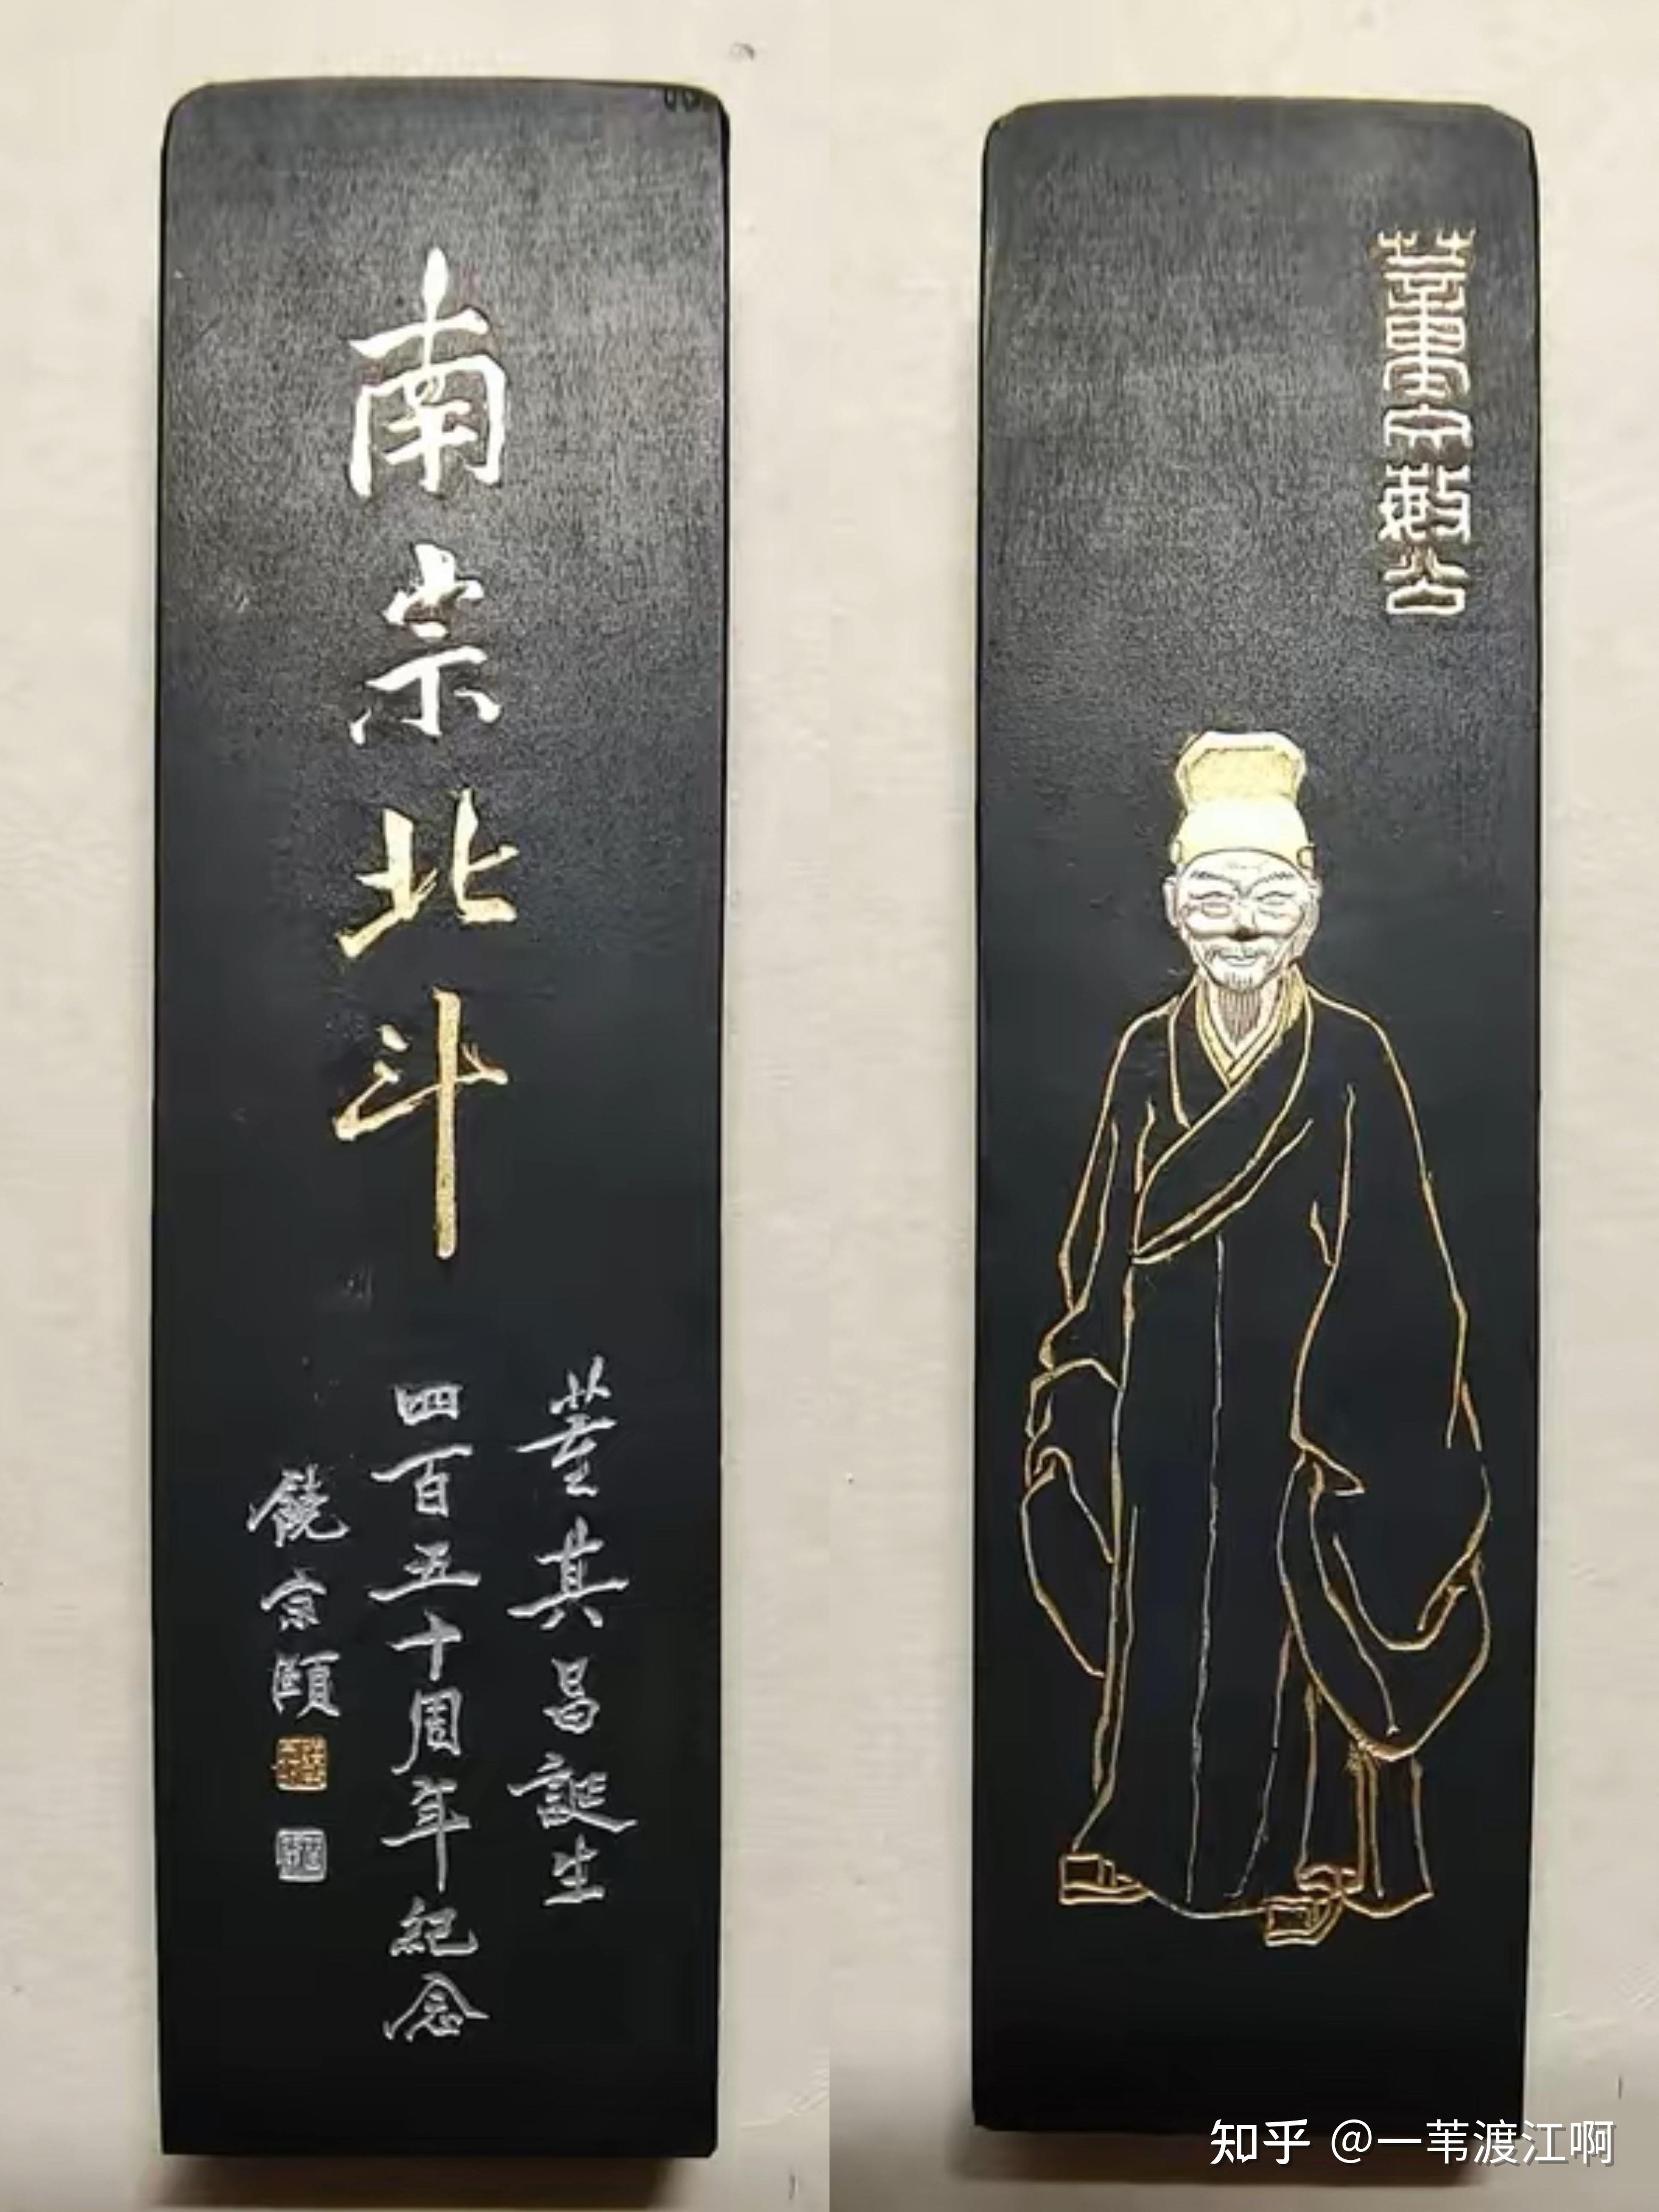 南宗北斗
董其昌誕生
四百五十周年紀念
饒宗頤
董文敏公
知乎 @一苇渡江啊